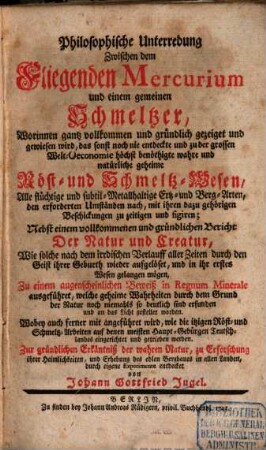 Philosophische Unterredung
Zwischen dem
Fliegenden Mercurium
und einem gemeinen
Schmeltzer,
Worinnen gantz vollkommen und gründlich gezeiget und
gewiesen wird, das sonst noch nie entdeckte und zu der grossen
Welt-Oeconomie höchst benöthigte wahre und
natürliche geheime
Röst- und Schmeltz-Wesen,
Alle flüchtige und subtil-Metallhaltige Ertz- und Berg-Arten,
den erforderten Umständen nach, mit ihren dazu gehörigen
Beschickungen zu zeitigen und figiren;
Nebst einem vollkommenen und gründlichen Bericht
Der Natur und Creatur,
Wie solche nach dem irrdischen Verlauff aller Zeiten durch den
Geist ihrer Geburth wieder aufgelöset, und in ihr erstes
Wesen gelangen mögen,
Zu einem augenscheinlichen Beweiß in Regnum Minerale
ausgeführet, welche geheime Wahrheiten durch den Grund
der Natur noch niemahls so deutlich sind erfunden
und an das Licht gestellet worden.
Wobey auch ferner mit angeführet wird, wie die itzigen Röst- und
Schmeltz-Arbeiten auf denen meisten Haupt-Gebürgen Teutsch-
landes eingerichtet und getrieben werden.
Zur gründlichen Erkäntniß der wahren Natur, zu Erforschung
ihrer Heimlichkeiten, und Erhebung des edlen Bergbaues in allen Landen,
durch eigene Experimenten entdecket
von
Johann Gottfried Jugel.
BERLIN,
Zu finden bey Johann Andreas Rüdigern, privil. Buchhändl.
BIBLIOTHEK